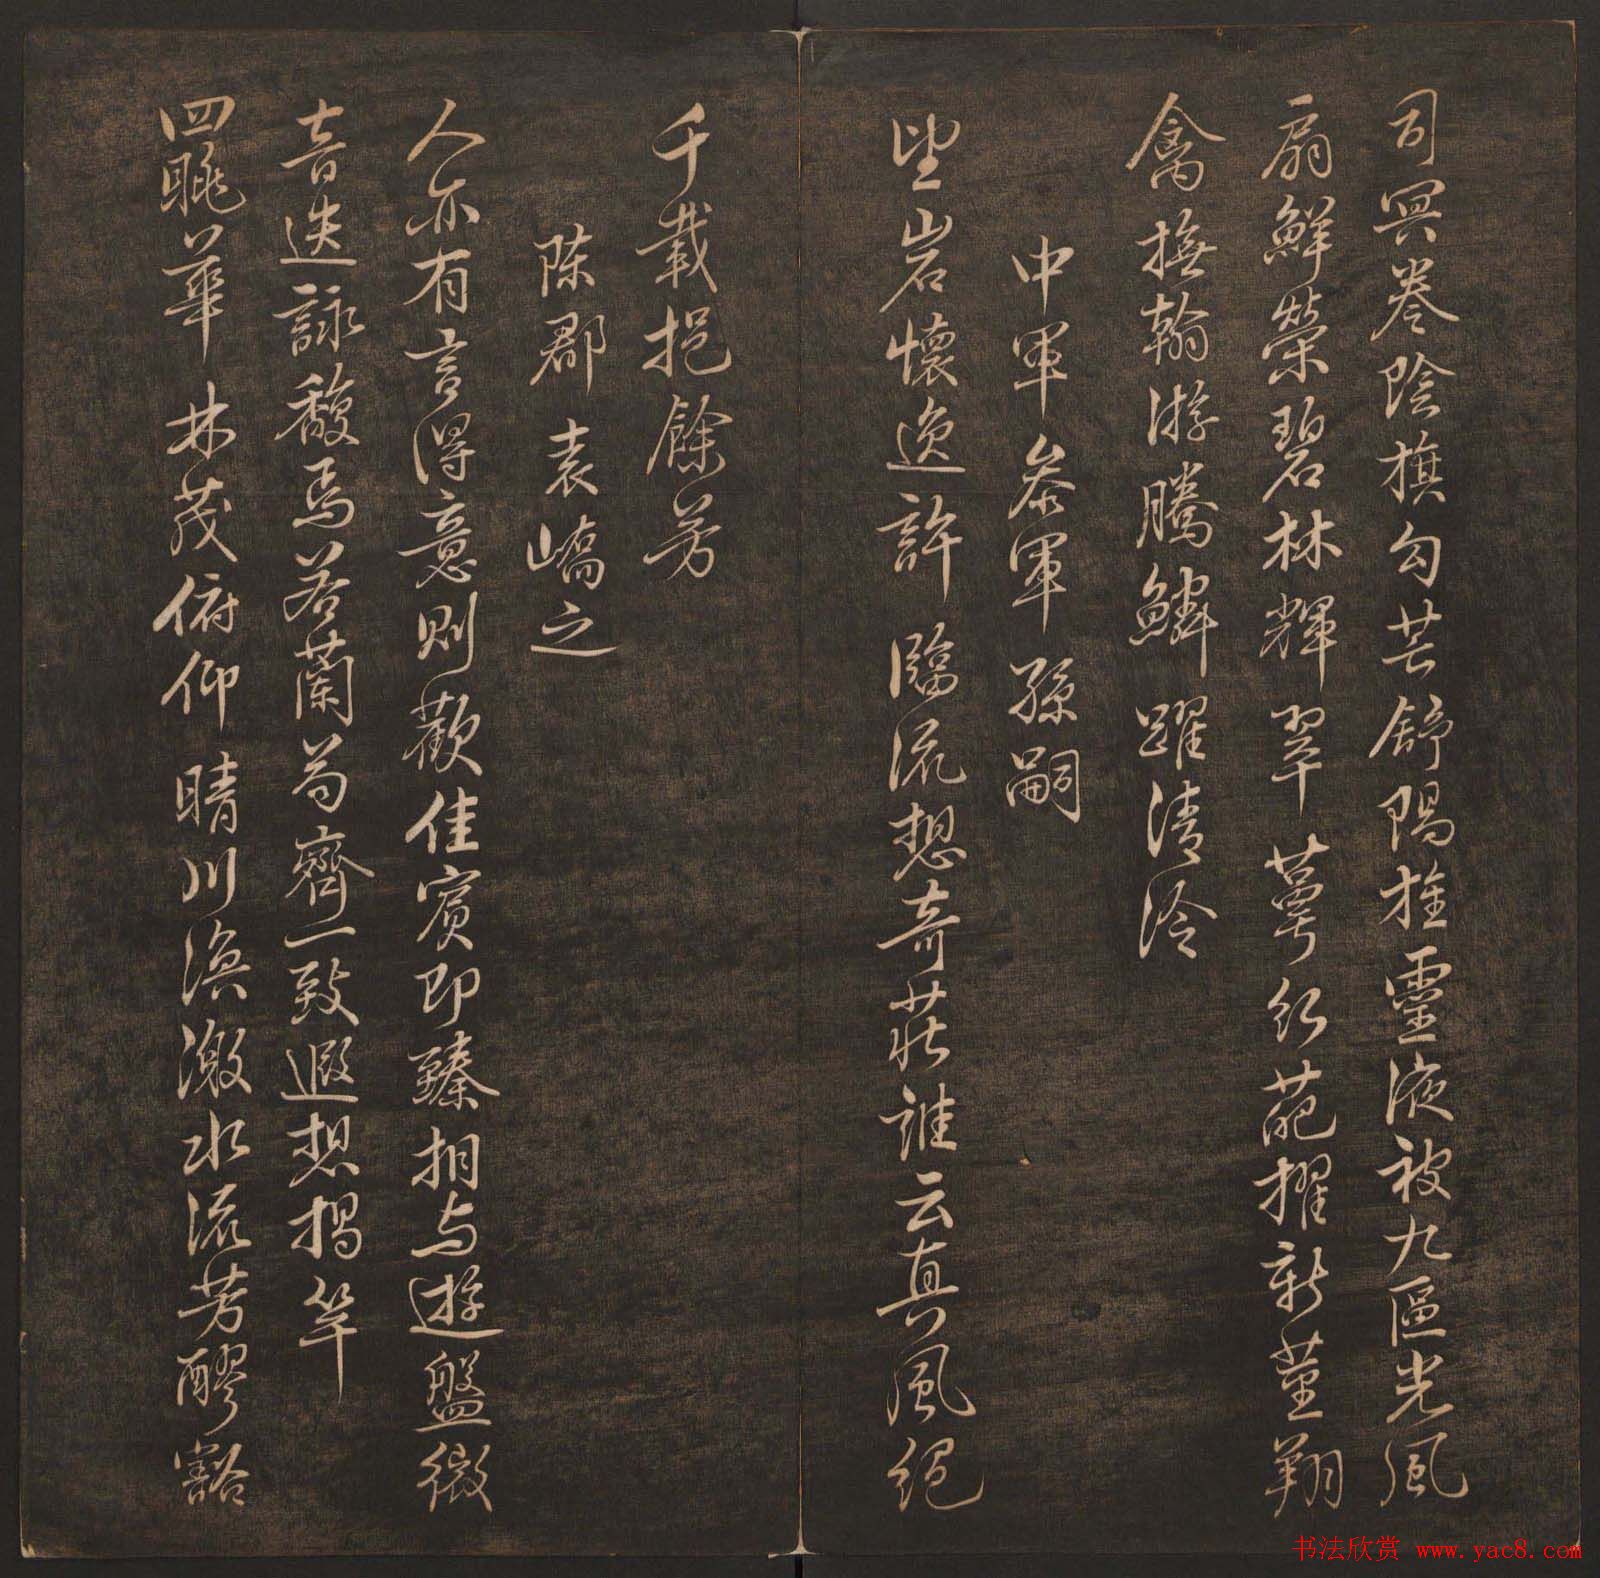 司冥卷陰旗勾芒舒陽旌靈液被九區光風
扇鮮榮碧林輝翠萼紅葩擢新莖翔
禽撫翰游騰鱗躍清泠
中軍參軍孫嗣
望岩懷逸許臨流想奇莊誰云真風絕
千載挹餘芳
陳郡袁嶠之
人亦有言得意則歡佳賓即臻相與遊盤微
音迭詠馥焉若蘭苟齊一致遐想揭竿
四眺華林茂俯仰晴川渙激水流芳醪豁
书法欣赏 www.yac8.com